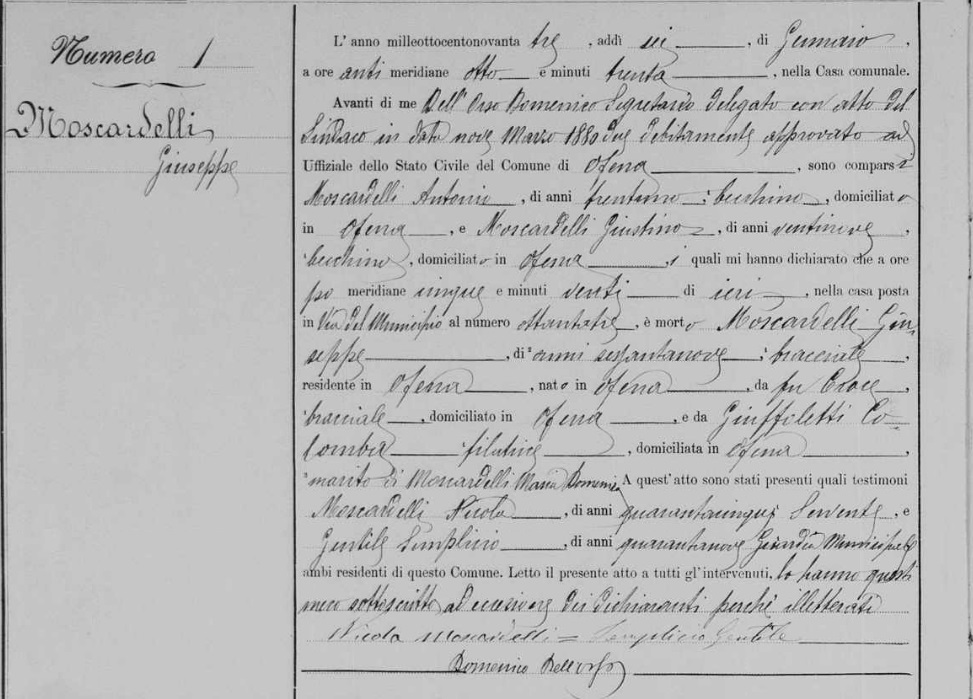 Numero 1
Moscardelli
Giuseppe
L'anno milleottocentonovanta tre, addì sei, di Gennaio,
a ore anti meridiane otto e minuti trenta, nella Casa comunale.
Avanti di me Dell'Orso Domenico Segretario delegato con atto del
Sindaco in data nove Marzo 188 debitamente approvato ad
Uffiziale dello Stato Civile del Comune di Ofena, sono comparsi
Moscardelli Antonio, di anni trentuno; becchino, domiciliato
in Ofena, e Moscardelli Giustino, di anni ventinove,
becchino, domiciliato in Ofena, i quali mi hanno dichiarato che a ore
po meridiane cinque e minuti venti di ieri, nella casa posta
in Via del Municipio al numero ottantatre, è morto Moscardelli Giu-
seppe, di anni sessantanove; bracciale,
residente in Ofena, nato in Ofena, da fu Croce,
bracciale, domiciliato in Ofena, e da Giuffoletti Co-
lomba filatrice, domiciliata in Ofena,
marito di Moscardelli Maria Domenica A quest'atto sono stati presenti quali testimoni
Moscardelli Nicola, di anni quarantacinque; Servente, e
Gentile Simplicio, di anni quarantanove Guardia Municipale
ambi residenti di questo Comune. Letto il presente atto a tutti gl'intervenuti, lo hanno questi
meco sottoscritto ad eccezione dei dichiaranti perchè illetterati
Nicola Moscardelli = Semplicio Gentile
Domenico Dell'Orso